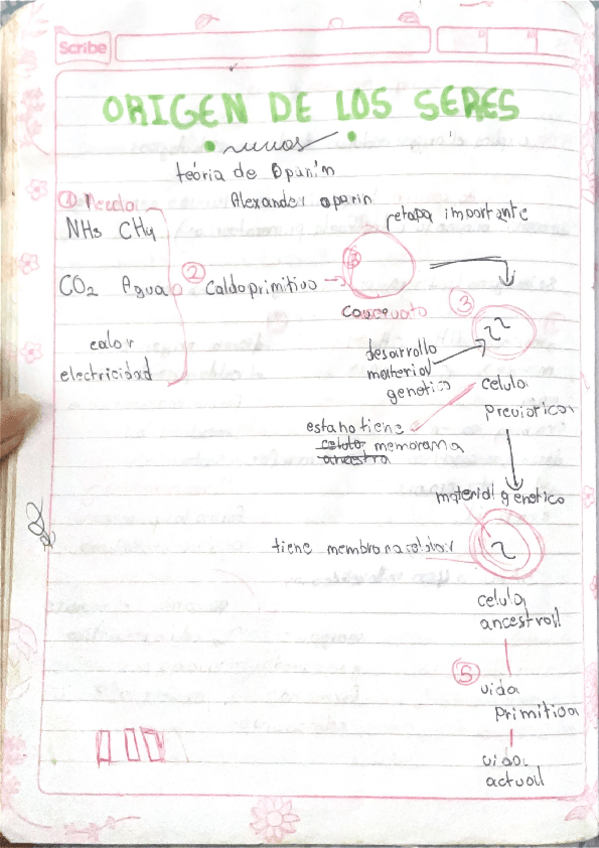 Scribe
ORIGEN DE LOS SERES
vivos
teória de Oparin
Alexander oparin
① Mezcla
NH3 CH4
CO2 Agua
calor
electricidad
② Caldo primitivo
etapa importante
coacervato
③
desarrollo
material
genetico
celula
previotica
esta no tiene
celula memorama
ancestra
material genetico
tiene membrana celular
celula
ancestral
⑤ vida
primitiva
vida
actual